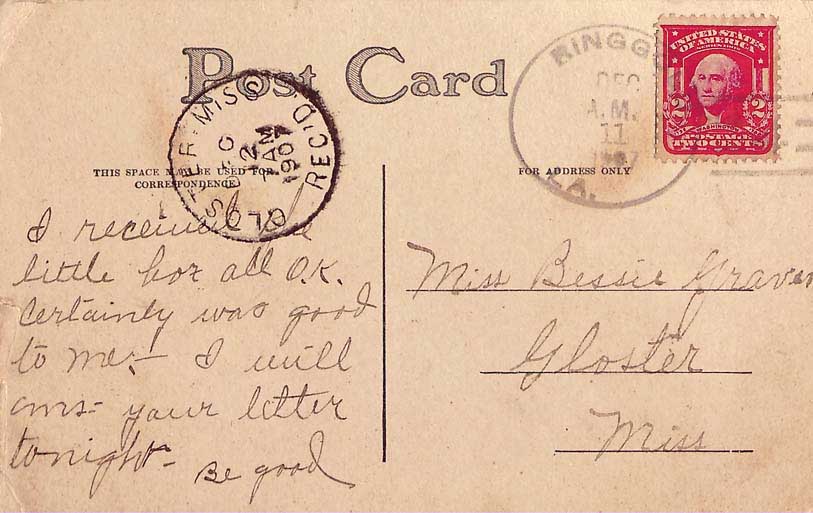 Post Card
THIS SPACE MAY BE USED FOR
CORRESPONDENCE
FOR ADDRESS ONLY
GLOSTER MISS
DEC
12
7 AM
1907
REC'D.
RINGG
DEC
A.M.
11
1907
LA.
UNITED STATES
OF AMERICA
2 2
WASHINGTON
POSTAGE
TWO CENTS
I received the
little box all O.K.
Certainly was good
to me:- I will
ans- your letter
tonight-
Be good
Miss Bessie Graven
Gloster
Miss